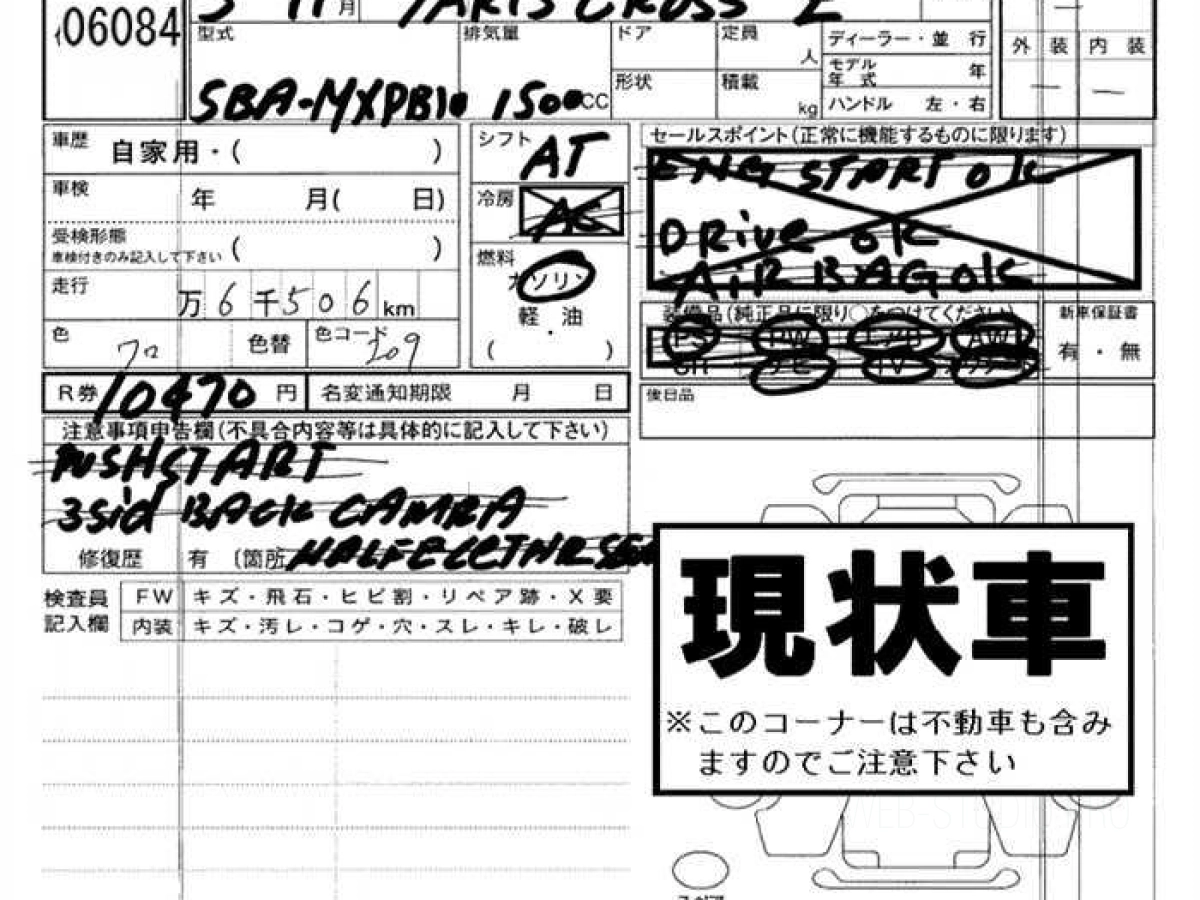 06084
5 11 月 YARIS CROSS Z
型式 排気量 ドア 定員 人 ディーラー・並 行
モデル年式 年
外 装 内 装
SBA-MXPB10 1500 CC 形状 積載 kg ハンドル 左・右
車歴 自家用・( )
シフト AT
セールスポイント(正常に機能するものに限ります)
ENG START OK
DRivE OK
AiR BAG OK
車検 年 月( 日)
冷房 AC
受検形態
車検付きのみ記入して下さい ( )
燃料
ガソリン
軽・油
( )
走行 万 6 千 5 0 6 km
色 色替 色コード 209
装備品(純正品に限り○をつけてください)
PS PW エアB AW
ナビ TV
新車保証書
有・無
R券 10470 円 名変通知期限 月 日
後日品
注意事項申告欄(不具合内容等は具体的に記入して下さい)
PUSHSTART
3Sid BACK CAMRA
修復歴 有 〔箇所 HALFELCTHR
検査員
記入欄
FW キズ・飛石・ヒビ割・リペア跡・X要
内装 キズ・汚レ・コゲ・穴・スレ・キレ・破レ
現状車
※このコーナーは不動車も含み
ますのでご注意下さい